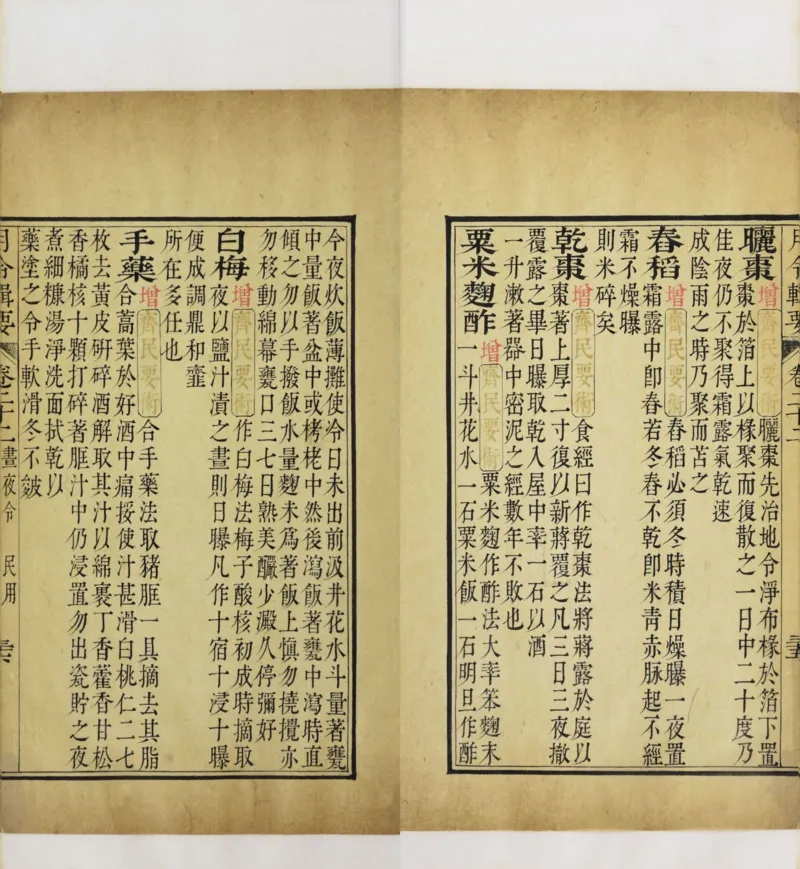 月令輯要 卷二十二
曬棗 增 齊民要術 曬棗先治地令淨布椽於箔下置
棗於箔上以椽聚而復散之一日中二十度乃
佳夜仍不聚得霜露氣乾速
成陰雨之時乃聚而苫之
舂稻 增 齊民要術 舂稻必須冬時積日燥曝一夜置
霜露中卽舂若冬舂不乾卽米靑赤脉起不經
霜不燥曝
則米碎矣
乾棗 增 齊民要術 食經曰作乾棗法將蔣露於庭以
棗著上厚二寸復以新蔣覆之凡三日三夜撤
覆露之畢日曝取乾入屋中率一石以酒
一升漱著器中密泥之經數年不敗也
粟米麴酢 增 齊民要術 粟米麴作酢法大率笨麴末
一斗井花水一石粟米飯一石明旦作酢
今夜炊飯薄攤使冷日未出前汲井花水斗量著甕
中量飯著盆中或栲栳中然後瀉飯著甕中瀉時直
傾之勿以手撥飯水量麴末爲著飯上愼勿撓攪亦
勿移動綿幕甕口三七日熟美釅少澱久停彌好
白梅 增 齊民要術 作白梅法梅子酸核初成時摘取
夜以鹽汁漬之晝則日曝凡作十宿十浸十曝
便成調鼎和韲
所在多任也
手藥 增 齊民要術 合手藥法取猪胵一具摘去其脂
合蒿葉於好酒中痛挼使汁甚滑白桃仁二七
枚去黃皮硏碎酒解取其汁以綿裹丁香藿香甘松
香橘核十顆打碎著胵汁中仍浸置勿出瓷貯之夜
煮細糠湯淨洗面拭乾以
藥塗之令手軟滑冬不皴
月令輯要 卷二十二 晝夜令 民用 三六